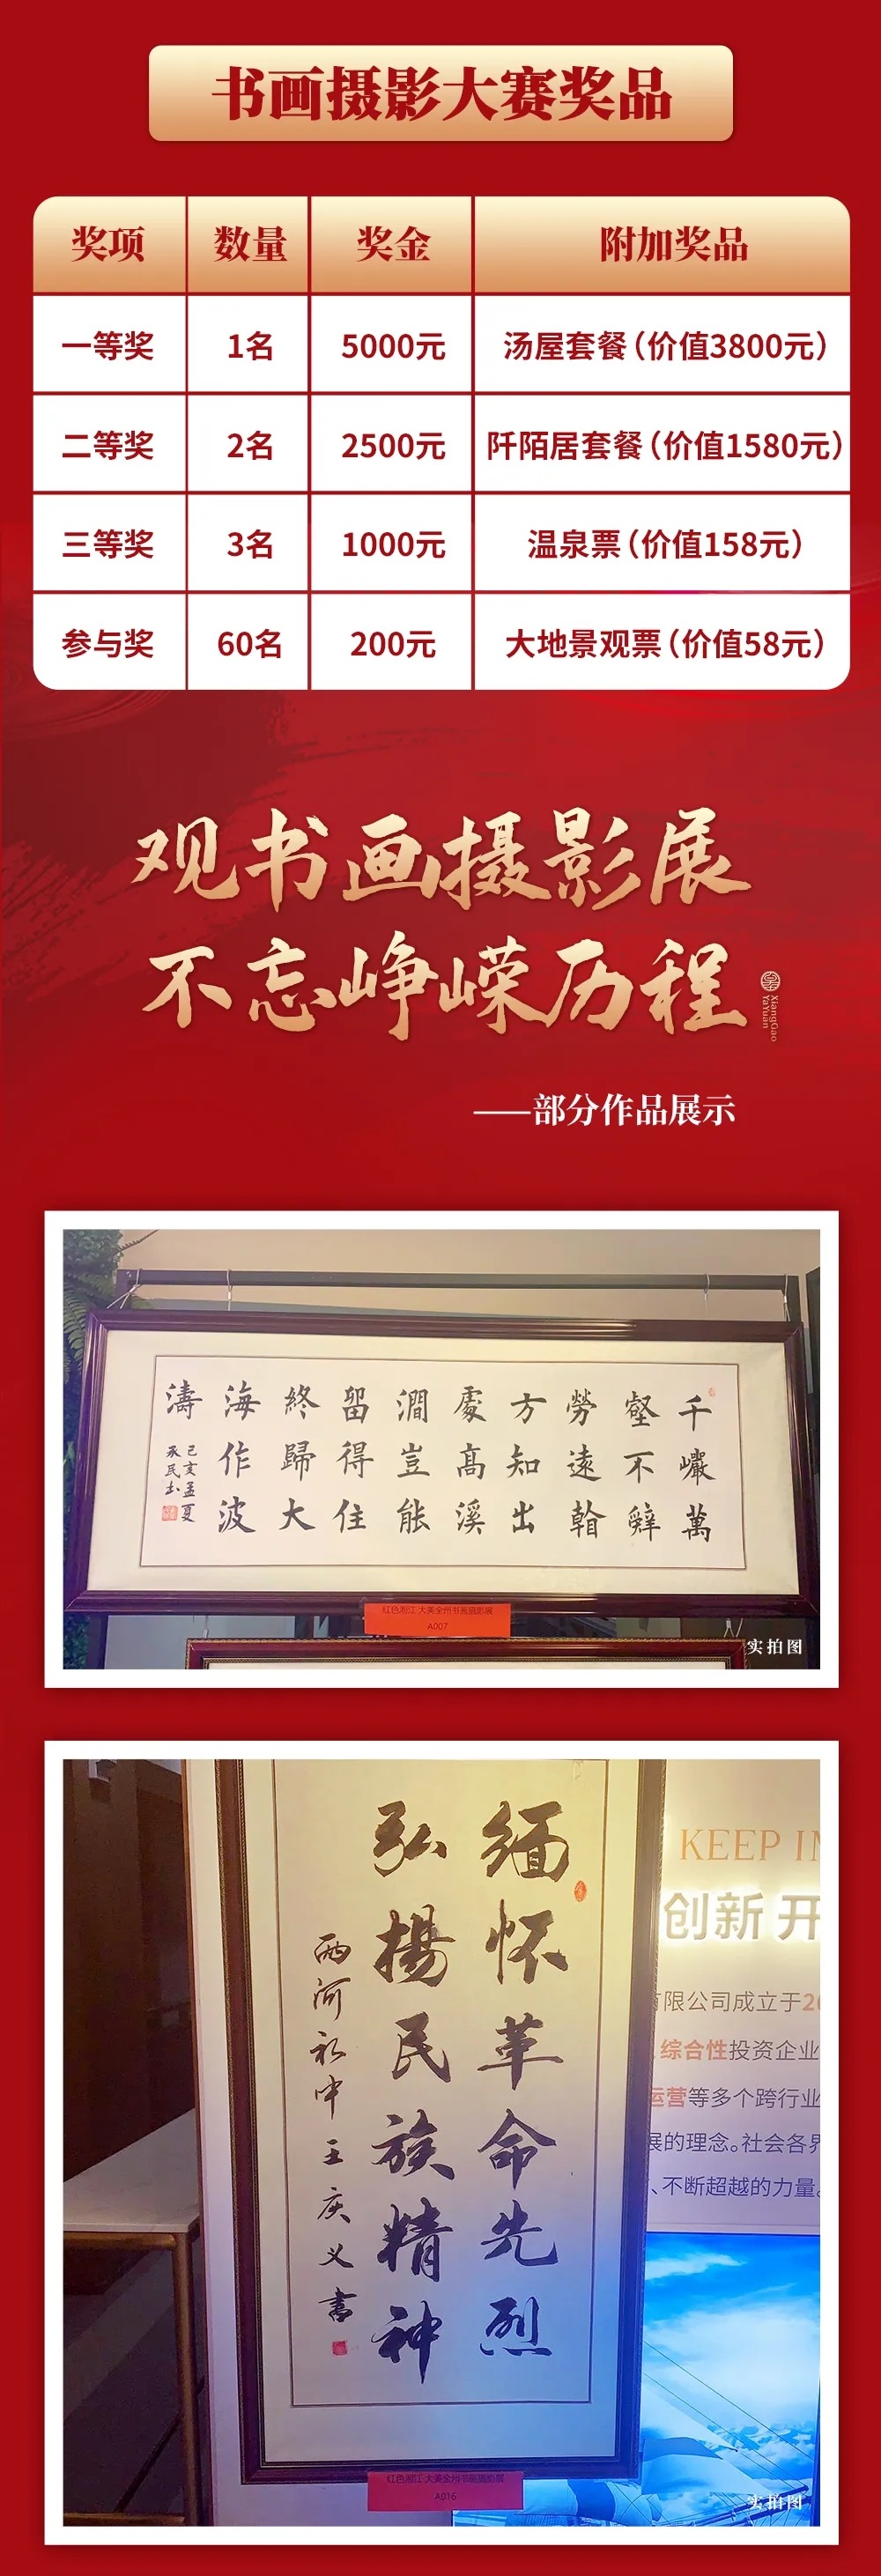 书画摄影大赛奖品
奖项 数量 奖金 附加奖品
一等奖 1名 5000元 汤屋套餐（价值3800元）
二等奖 2名 2500元 阡陌居套餐（价值1580元）
三等奖 3名 1000元 温泉票（价值158元）
参与奖 60名 200元 大地景观票（价值58元）
观书画摄影展
不忘峥嵘历程
XiangGao
YaYuan
——部分作品展示
千巖萬
壑不辤
勞遠㿰
方知出
處髙溪
澗豈能
留得住
終歸大
海作波
濤
己亥孟夏
承民书
红色湘江 大美全州书画摄影展
A007
实拍图
缅怀革命先烈
弘揚民族精神
两河礼中王庆义書
KEEP IN
创新 开
有限公司成立于20
综合性投资企业
运营等多个跨行业
展的理念。社会各界
、不断超越的力量。
红色湘江 大美全州书画摄影展
A016
实拍图